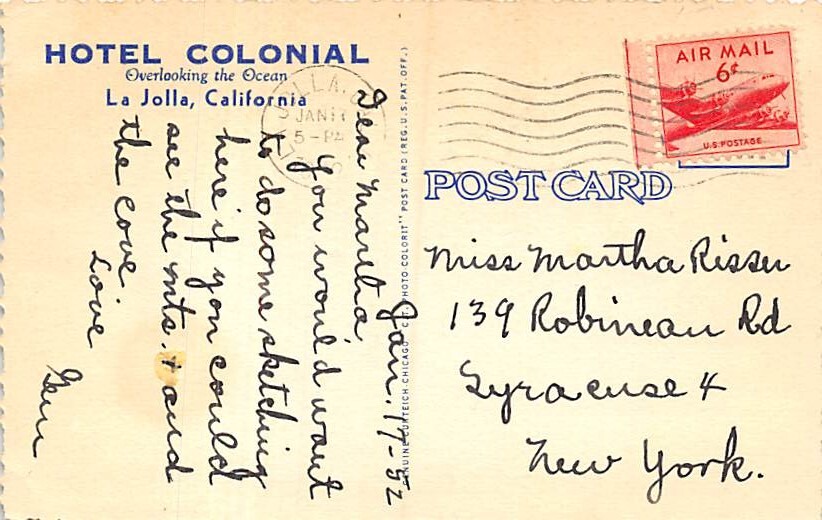 HOTEL COLONIAL
Overlooking the Ocean
La Jolla, California
Jan. 17-52
Dear Martha
You would want
to do some sketching
here if you could
see the mts. + and
the cove.
Love
GENUINE CURTEICH-CHICAGO "C.T. PHOTO COLORIT" POST CARD (REG. U.S. PAT. OFF.)
LA JOLLA,
JAN 17
5 - PM
AIR MAIL
6¢
U.S. POSTAGE
POST CARD
Miss Martha Risser
139 Robineau Rd
Syracuse 4
New York.